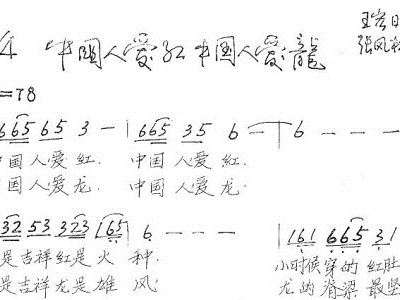 4 中国人爱红 中国人爱龍
王岩
张风
=78
665 65 3 — | 665 35 6 — | 6 — — —
中国人爱红. 中国人爱红.
国人爱龙. 中国人爱龙
32 53 323 165 | 6 — — — 161 665 31
是吉祥红是火 种. 小时候穿的红肚
是吉祥龙是雄 风. 龙的脊梁最坚